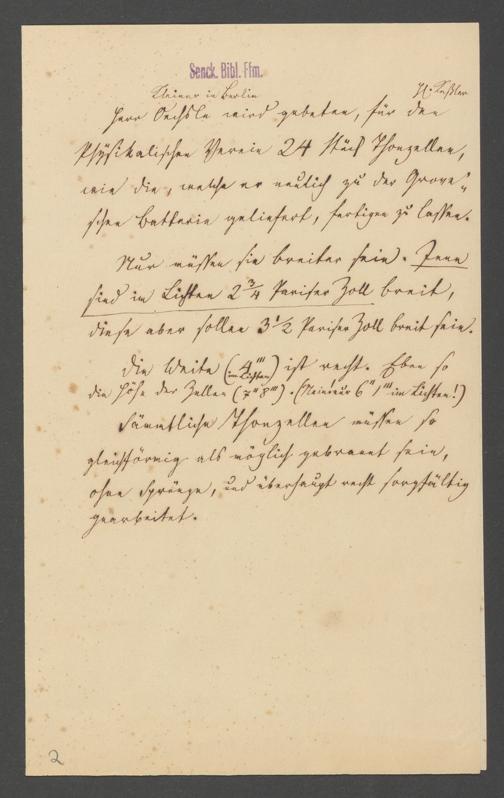 Senck. Bibl. Ffm.
Kleiner in Berlin
Herr Oechsle wird gebeten, für den
Physikalischen Verein 24 Stück Thonzellen,
wie die, welche er neulich zu der Grove'-
schen Batterie geliefert, fertigen zu lassen.
Nur müssen sie breiter sein. Jene
sind im Lichten 2 3/4 Pariser Zoll breit,
diese aber sollen 3 1/2 Pariser Zoll breit sein.
Die Weite (4''' im Lichten) ist recht. Eben so
die Höhe der Zellen (7'' 8'''). (Nein! nur 6'' 1''' im Lichten!)
Sämmtliche Thonzellen müssen so
gleichförmig als möglich gebrannt sein,
ohne Sprünge, und überhaupt recht sorgfältig
gearbeitet.
2